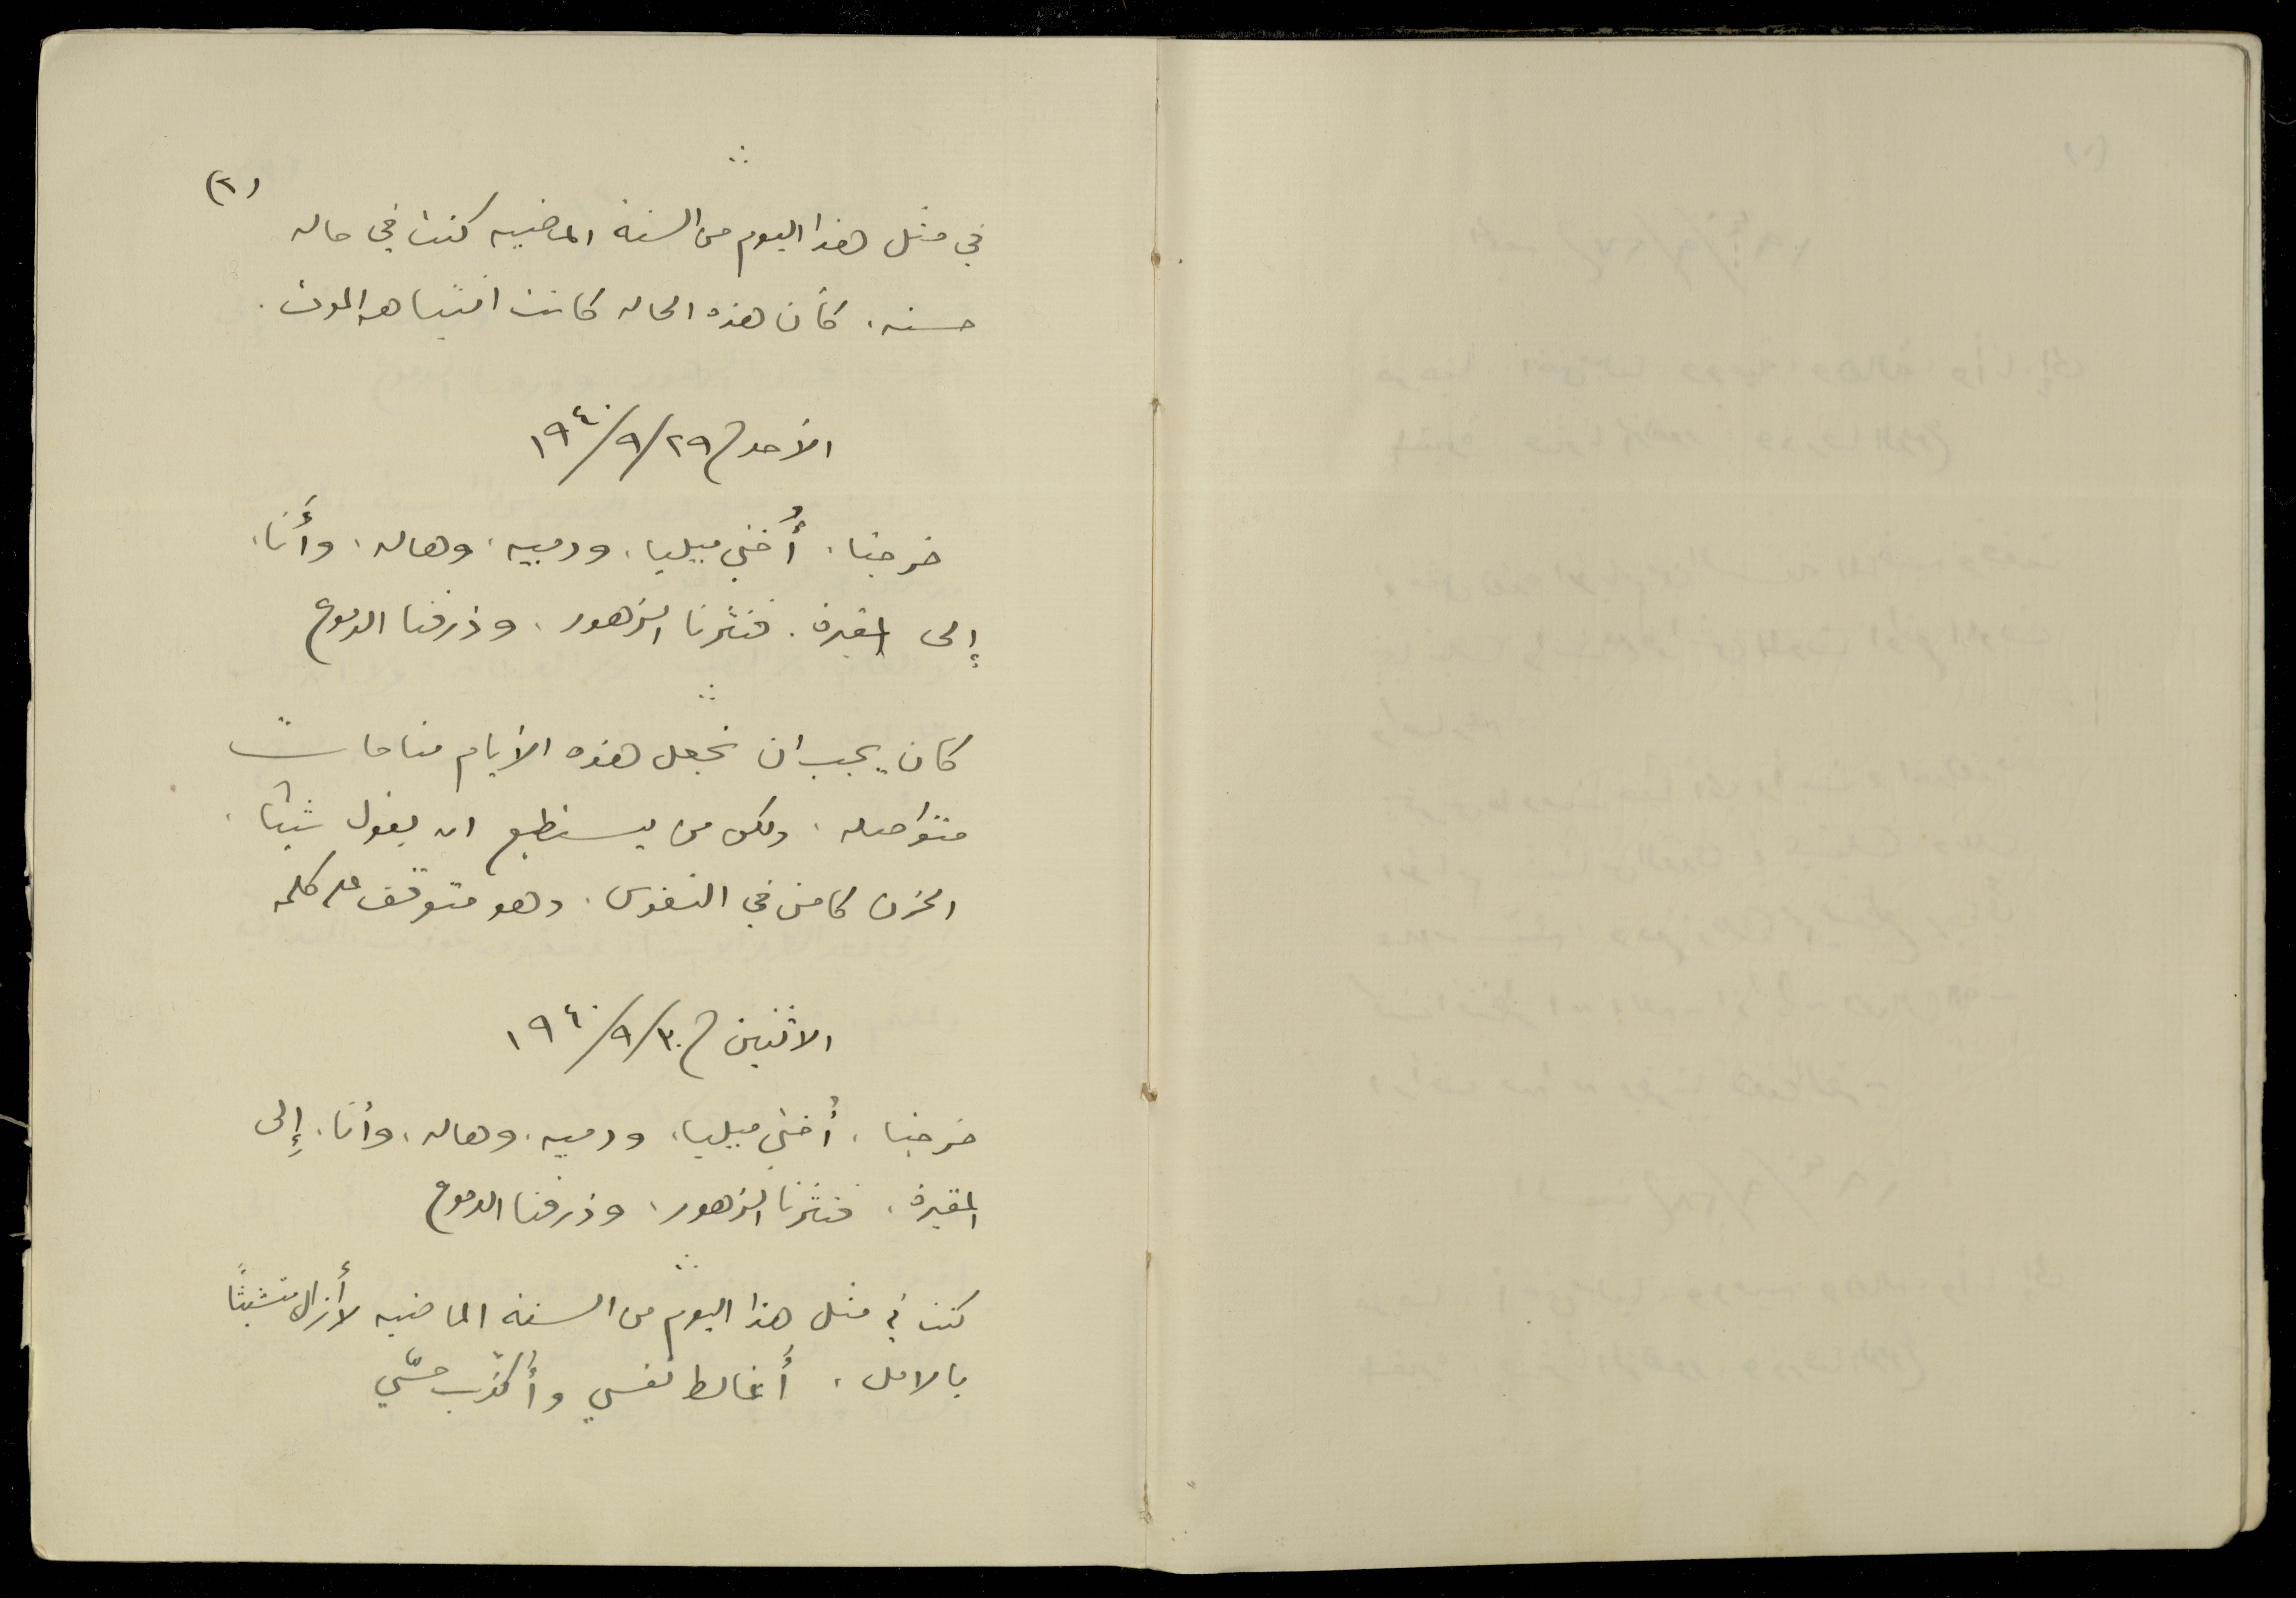 (٢)
في مثل هذا اليوم من السنة الماضيه كنت في حاله
حسنه، كأن هذه الحاله كانت انتباهة الموت.
الأحد ٢٩/٩/١٩٤٠
خرجنا، أُختي ميليا، ودميه، وهاله، وأَنا،
إلى المقبرة. فنثرنا الزهور، وذرفنا الدموع
كان يجب ان نجعل هذه الأيام مناحات
متواصله، ولكن من يستطيع ان يقول شيئًا،
الحزن كامن في النفوس، وهو متوقف على كلمه
الاثنين ٣٠/٩/١٩٤٠
خرجنا، أُختي ميليا، ودميه، وهاله، وأنا، إِلى
المقبرة، فنثرنا الزهور، وذرفنا الدموع
كنت في مثل هذا اليوم من السنة الماضيه لا أزال متشبثًا
بالامل، أُغالط نفسي وأُكذّب حسّي